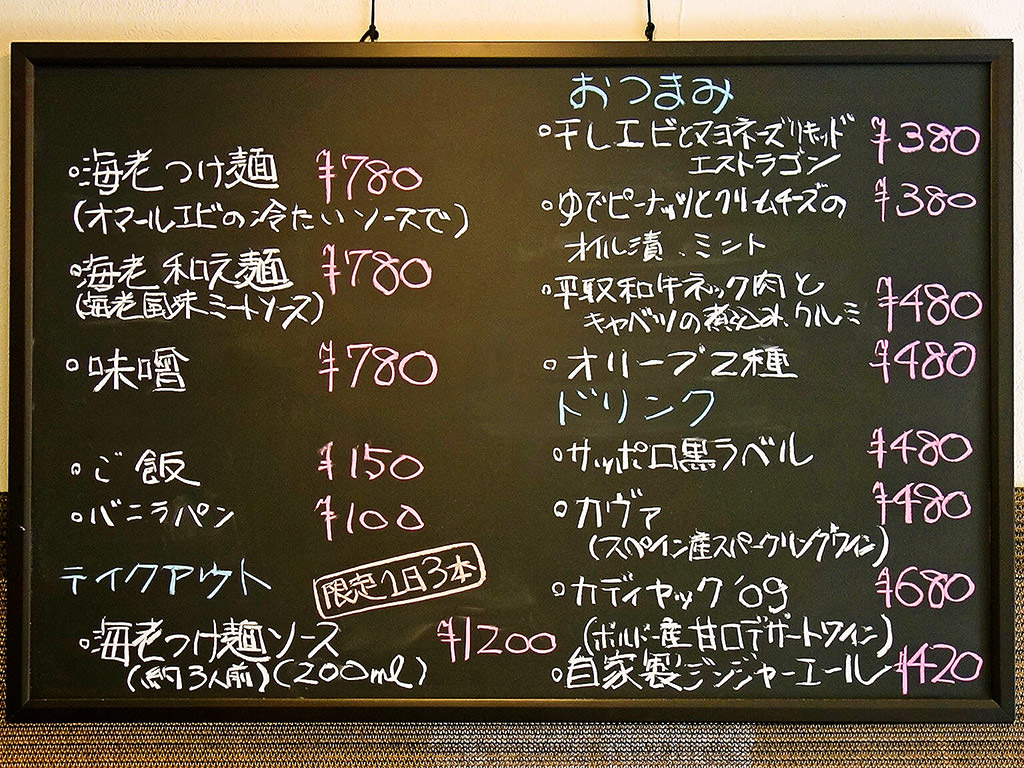 ・海老つけ麺 ¥780
(オマールエビの冷たいソースで)
・海老和え麺 ¥780
(海老風味ミートソース)
・味噌 ¥780
・ご飯 ¥150
・バニラパン ¥100
テイクアウト
限定1日3本
・海老つけ麺ソース ¥1200
(約3人前)(200ml)
おつまみ
・干しエビとマヨネーズリキッド ¥380
エストラゴン
・ゆでピーナッツとクリームチーズの ¥380
オイル漬、ミント
・平取和牛ネック肉と
キャベツの煮込み、クルミ ¥480
・オリーブ2種 ¥480
ドリンク
・サッポロ黒ラベル ¥480
・カヴァ ¥480
(スペイン産スパークリングワイン)
・カディヤック '09 ¥680
(ボルドー産甘口デザートワイン)
・自家製ジンジャーエール ¥420